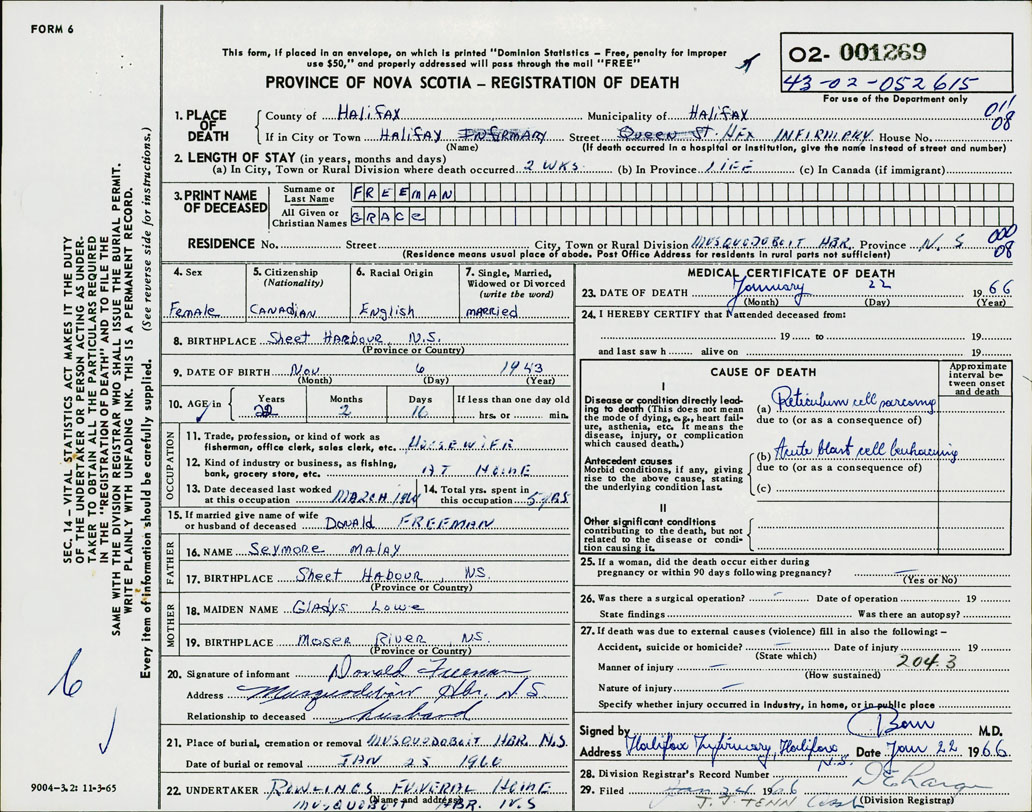 FORM 6
This form, if placed in an envelope, on which is printed "Dominion Statistics – Free, penalty for improper
use $50," and properly addressed will pass through the mail "FREE"
PROVINCE OF NOVA SCOTIA – REGISTRATION OF DEATH
02- 001269
43-02-052615
For use of the Department only
011
08
1. PLACE OF DEATH
County of HALIFAX Municipality of HALIFAX
If in City or Town HALIFAX INFIRMARY Street Queen St. HFX INFIRMARY House No.
(Name) (If death occurred in a hospital or institution, give the name instead of street and number)
2. LENGTH OF STAY (in years, months and days)
(a) In City, Town or Rural Division where death occurred 2 WKS. (b) In Province LIFE (c) In Canada (if immigrant)
3. PRINT NAME OF DECEASED
Surname or Last Name FREEMAN
All Given or Christian Names GRACE
000
08
RESIDENCE No. Street City, Town or Rural Division MUSQUODOBOIT HBR. Province N.S
(Residence means usual place of abode. Post Office Address for residents in rural parts not sufficient)
4. Sex
Female
5. Citizenship
(Nationality)
CANADIAN
6. Racial Origin
English
7. Single, Married,
Widowed or Divorced
(write the word)
MARRIED
8. BIRTHPLACE Sheet HARBOUR, N.S.
(Province or Country)
9. DATE OF BIRTH Nov 6 1943
(Month) (Day) (Year)
10. AGE in
Years Months Days If less than one day old
22 2 16 hrs. or min.
OCCUPATION
11. Trade, profession, or kind of work as
fisherman, office clerk, sales clerk, etc. HOUSEWIFE
12. Kind of industry or business, as fishing,
bank, grocery store, etc. AT HOME
13. Date deceased last worked
at this occupation MARCH 1964
14. Total yrs. spent in
this occupation 5 YRS
15. If married give name of wife
or husband of deceased DONALD FREEMAN
FATHER
16. NAME Seymore MALAY
17. BIRTHPLACE Sheet HABOUR, NS.
(Province or Country)
MOTHER
18. MAIDEN NAME Gladys Lowe
19. BIRTHPLACE MOSER RIVER, NS.
(Province or Country)
20. Signature of informant Donald Freeman
Address Hbr. N.S
Relationship to deceased husband
21. Place of burial, cremation or removal MUSQUODOBOIT HBR. N.S.
Date of burial or removal JAN 25 1966
22. UNDERTAKER ROWLINGS FUNERAL HOME
(Name and address) HBR. N.S
MEDICAL CERTIFICATE OF DEATH
23. DATE OF DEATH January 22 1966
(Month) (Day) (Year)
24. I HEREBY CERTIFY that I attended deceased from:
19 to 19
and last saw h alive on 19
CAUSE OF DEATH
Approximate interval between onset and death
I
Disease or condition directly leading to death (This does not mean the mode of dying, e.g., heart failure, asthenia, etc. It means the disease, injury, or complication which caused death.)
(a) Reticulum cell sarcoma
due to (or as a consequence of)
Antecedent causes
Morbid conditions, if any, giving rise to the above cause, stating the underlying condition last.
(b) Acute blast cell leukaemia
due to (or as a consequence of)
(c)
II
Other significant conditions
contributing to the death, but not related to the disease or condition causing it.
25. If a woman, did the death occur either during
pregnancy or within 90 days following pregnancy? –
(Yes or No)
26. Was there a surgical operation? – Date of operation 19
State findings Was there an autopsy?
27. If death was due to external causes (violence) fill in also the following:–
Accident, suicide or homicide? – Date of injury 19
(State which)
204.3
Manner of injury –
(How sustained)
Nature of injury –
Specify whether injury occurred in industry, in home, or in public place
Signed by M.D.
Address Halifax Infirmary, Halifax N.S. Date Jan 22 1966
28. Division Registrar's Record Number
29. Filed Jan 24 1966
(Division Registrar)
SEC. 14 – VITAL STATISTICS ACT MAKES IT THE DUTY
OF THE UNDERTAKER OR PERSON ACTING AS UNDER-
TAKER TO OBTAIN ALL THE PARTICULARS REQUIRED
IN THE "REGISTRATION OF DEATH" AND TO FILE THE
SAME WITH THE DIVISION REGISTRAR WHO SHALL ISSUE THE BURIAL PERMIT.
WRITE PLAINLY WITH UNFADING INK. THIS IS A PERMANENT RECORD.
Every item of information should be carefully supplied. (See reverse side for instructions.)
6
9004–3.2: 11-3-65